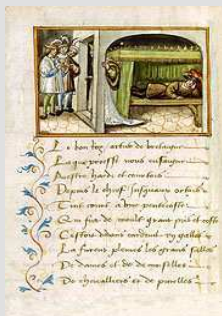 Le bon roy artus de bretaigne
La qui proesse nous ensaigne
A estre hardi et courtois
Depuis le chief jusquaux ortois
Tint court a une penthecoste
Qui fut de moult grant pris et coste
Cestoit devant cardueil en galles
La furent plaines les grans salles
De dames et de damoiselles
De chevalliers et de pucelles